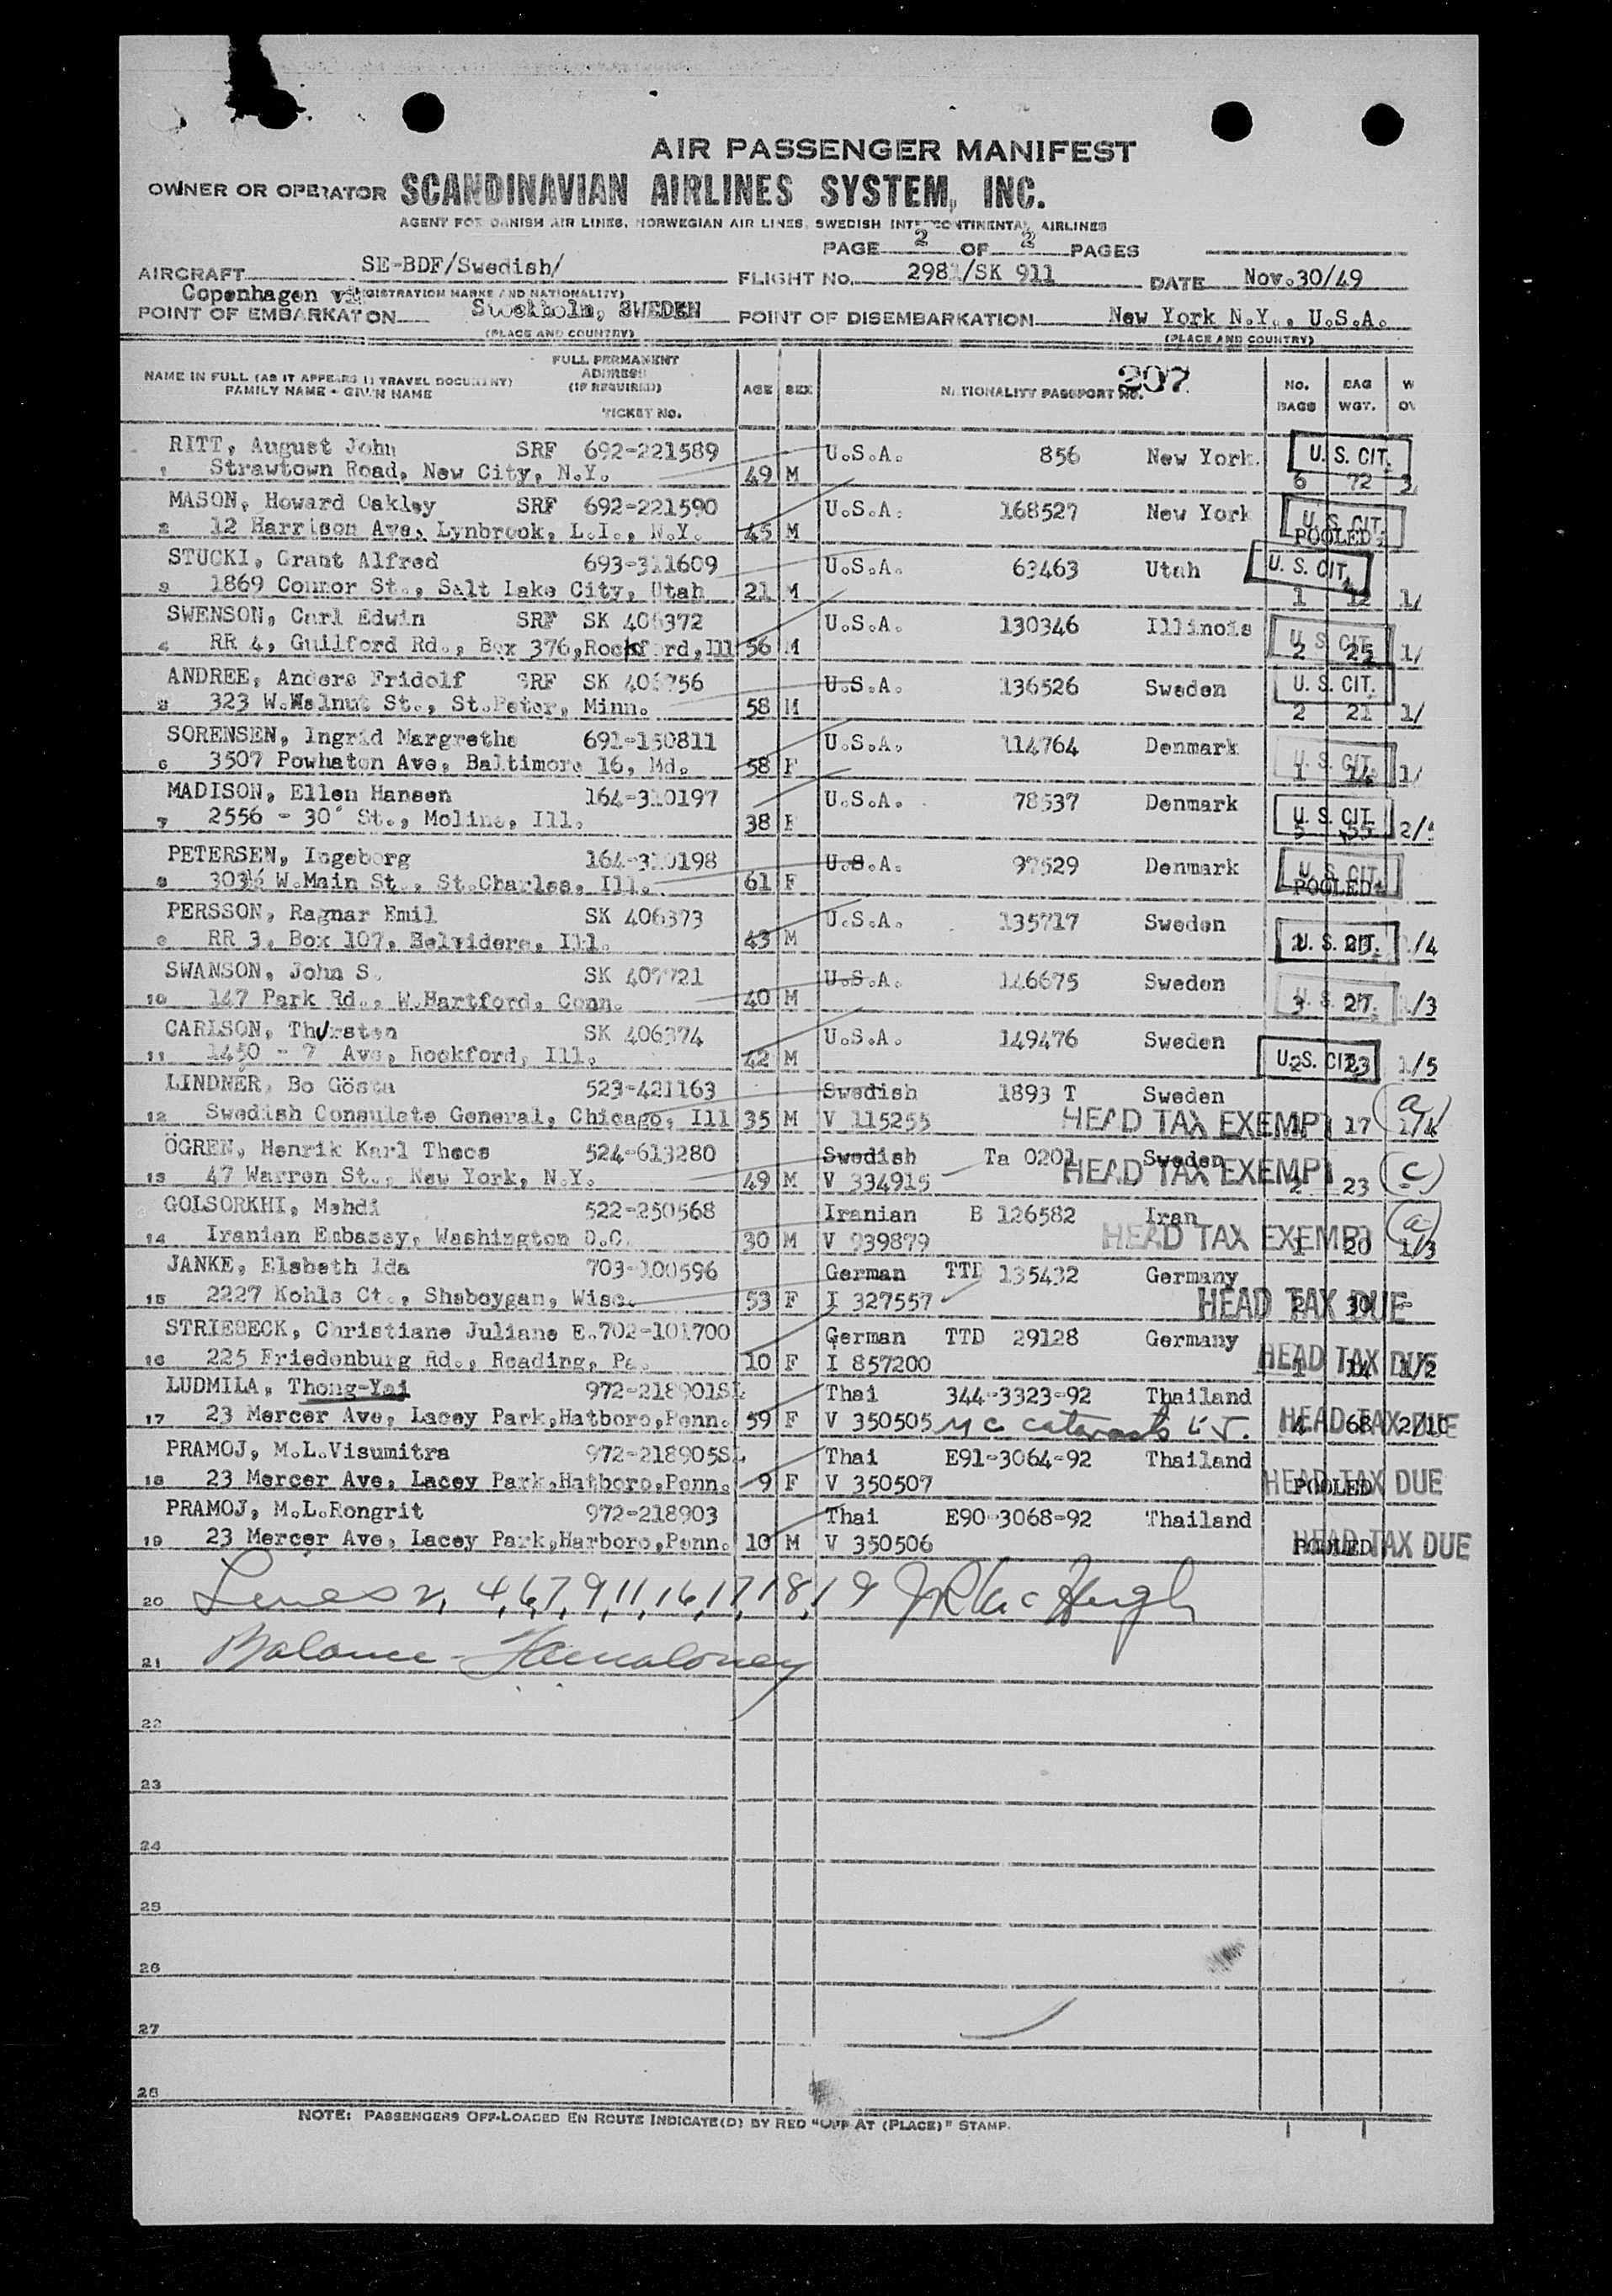 AIR PASSENGER MANIFEST
OWNER OR OPERATOR SCANDINAVIAN AIRLINES SYSTEM, INC.
AGENT FOR DANISH AIR LINES, NORWEGIAN AIR LINES, SWEDISH INTERCONTINENTAL AIRLINES
PAGE 2 OF 2 PAGES
AIRCRAFT SE-BDF/Swedish/ FLIGHT No. 298 /SK 911 DATE Nov.30/49
Copenhagen (REGISTRATION MARKS AND NATIONALITY)
POINT OF EMBARKATION Stockholm, SWEDEN POINT OF DISEMBARKATION New York N.Y., U.S.A.
(PLACE AND COUNTRY) (PLACE AND COUNTRY)
FULL PERMANENT
NAME IN FULL (AS IT APPEARS IN TRAVEL DOCUMENT) ADDRESS
FAMILY NAME - GIVEN NAME (IF REQUIRED) AGE SEX NATIONALITY PASSPORT NO. 207 NO. BAG W
TICKET NO. BAGS WGT. OV
RITT, August John SRF 692-221589 U.S.A. 856 New York. U. S. CIT.
1 Strawtown Road, New City, N.Y. 49 M 6 72 3
MASON, Howard Oakley SRF 692-221590 U.S.A. 168527 New York U. S. CIT.
2 12 Harrison Ave, Lynbrook, L.I., N.Y. 45 M POOLED
STUCKI, Grant Alfred 693-311609 U.S.A. 63463 Utah U. S. CIT.
3 1869 Connor St., Salt Lake City, Utah 21 M 1 12 1/
SWENSON, Carl Edwin SRF SK 406372 U.S.A. 130346 Illinois U. S. CIT.
4 RR 4, Guilford Rd., Box 376,Rockford,Ill 56 M 2 25 1/
ANDREE, Anders Fridolf SRF SK 406756 U.S.A. 136526 Sweden U. S. CIT.
5 323 W.Walnut St., St.Peter, Minn. 58 M 2 21 1/
SORENSEN, Ingrid Margrethe 691-150811 U.S.A. 114764 Denmark U. S. CIT.
6 3507 Powhaton Ave, Baltimore 16, Md. 58 F 1 14 1/
MADISON, Ellen Hansen 164-310197 U.S.A. 78537 Denmark U. S. CIT.
7 2556 - 30 St., Moline, Ill. 38 F 5 55 2/
PETERSEN, Ingeborg 164-310198 U.S.A. 97529 Denmark U. S. CIT.
8 303½ W.Main St., St.Charles, Ill. 61 F POOLED
PERSSON, Ragnar Emil SK 406373 U.S.A. 135717 Sweden
9 RR 3, Box 107, Belvidere, Ill. 43 M U. S. CIT. /4
SWANSON, John S. SK 407721 U.S.A. 146675 Sweden U. S. CIT.
10 147 Park Rd., W.Hartford, Conn. 40 M 3 27 1/3
CARLSON, Thursten SK 406374 U.S.A. 149476 Sweden
11 1450 - 7 Ave, Rockford, Ill. 42 M U. S. CIT. 2 23 1/5
LINDNER, Bo Gösta 523-421163 Swedish 1893 T Sweden (a)
12 Swedish Consulate General, Chicago, Ill 35 M V 115255 HEAD TAX EXEMPT 1 17 1/4
ÖGREN, Henrik Karl Theos 524-613280 Swedish Ta 0201 Sweden
13 47 Warren St., New York, N.Y. 49 M V 334915 HEAD TAX EXEMPT 2 23 (c)
GOLSORKHI, Mehdi 522-250568 Iranian B 126582 Iran (a)
14 Iranian Embassy, Washington D.C. 30 M V 939879 HEAD TAX EXEMPT 1 20 1/3
JANKE, Elsbeth Ida 703-100596 German TTD 135432 Germany
15 2227 Kohls Ct., Sheboygan, Wisc. 53 F I 327557 HEAD TAX DUE 2 30 -
STRIEBECK, Christiane Juliane E.702-101700 German TTD 29128 Germany
16 225 Friedenburg Rd., Reading, Pa. 10 F I 857200 HEAD TAX DUE 1 14 1/2
LUDMILA, Thong-Yai 972-218901SL Thai 344-3323-92 Thailand
17 23 Mercer Ave, Lacey Park,Hatboro,Penn. 59 F V 350505 HEAD TAX DUE 4 68 2/10
PRAMOJ, M.L.Visumitra 972-218905SL Thai E91-3064-92 Thailand
18 23 Mercer Ave, Lacey Park,Hatboro,Penn. 9 F V 350507 HEAD TAX DUE POOLED
PRAMOJ, M.L.Rongrit 972-218903 Thai E90-3068-92 Thailand
19 23 Mercer Ave, Lacey Park,Harboro,Penn. 10 M V 350506 HEAD TAX DUE POOLED
20 Lines 2, 4, 6, 7, 9, 11, 16, 17, 18, 19
21 Balance -
22
23
24
25
26
27
28
NOTE: PASSENGERS OFF-LOADED EN ROUTE INDICATE(D) BY RED "OFF AT (PLACE)" STAMP.